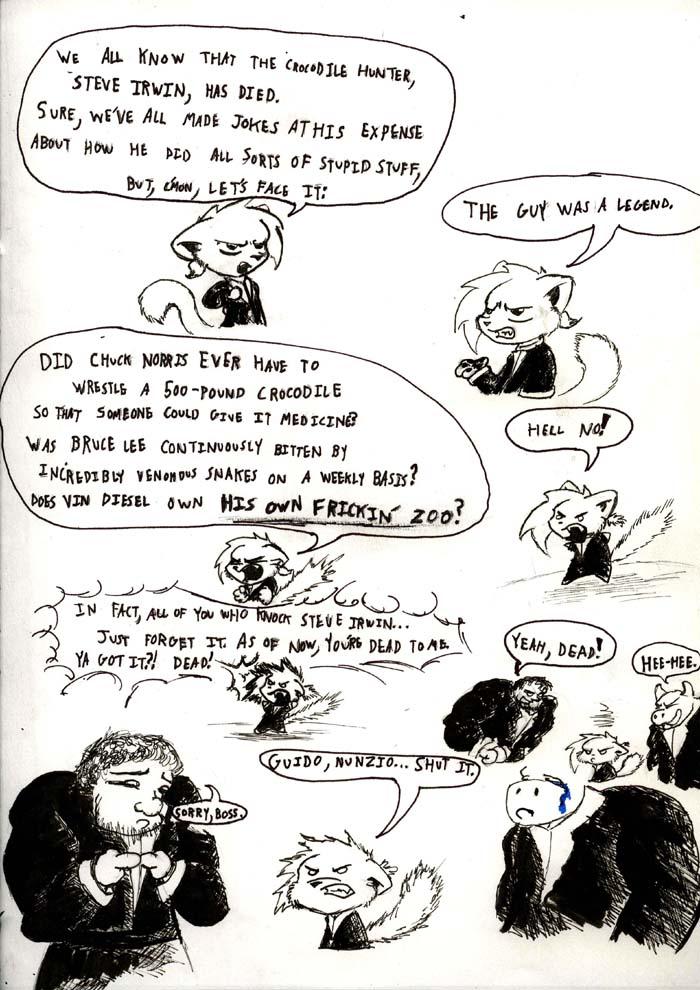 WE ALL KNOW THAT THE CROCODILE HUNTER,
STEVE IRWIN, HAS DIED.
SURE, WE'VE ALL MADE JOKES AT HIS EXPENSE
ABOUT HOW HE DID ALL SORTS OF STUPID STUFF,
BUT, C'MON, LET'S FACE IT:
THE GUY WAS A LEGEND.
DID CHUCK NORRIS EVER HAVE TO
WRESTLE A 500-POUND CROCODILE
SO THAT SOMEONE COULD GIVE IT MEDICINE?
WAS BRUCE LEE CONTINUOUSLY BITTEN BY
INCREDIBLY VENOMOUS SNAKES ON A WEEKLY BASIS?
DOES VIN DIESEL OWN HIS OWN FRICKIN' ZOO?
HELL NO!
IN FACT, ALL OF YOU WHO KNOCK STEVE IRWIN...
JUST FORGET IT. AS OF NOW, YOU'RE DEAD TO ME.
YA GOT IT?! DEAD!
YEAH, DEAD!
HEE-HEE.
GUIDO, NUNZIO... SHUT IT.
SORRY, BOSS.